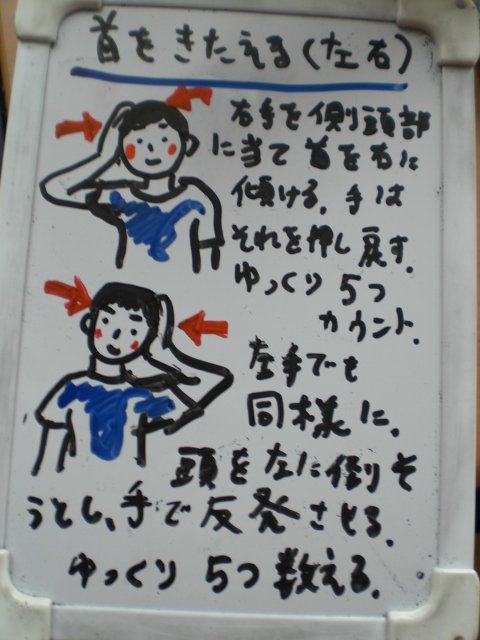 首をきたえる(左右)
右手を側頭部
に当て首を右に
傾ける。手は
それを押し戻す。
ゆっくり 5つ
カウント。
左手でも
同様に。
頭を左に倒そ
うとし、手で反発させる。
ゆっくり 5つ 数える。